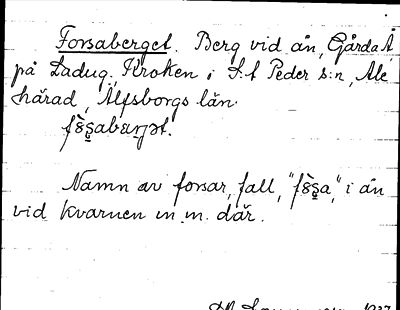 Forsaberget. Berg vid ån, Gårda Å
på Ladug. Kroken i S:t Peder s:n, Ale
härad, Älfsborgs län.
Namn av forsar, fall, i ån
vid kvarnen m.m. där.